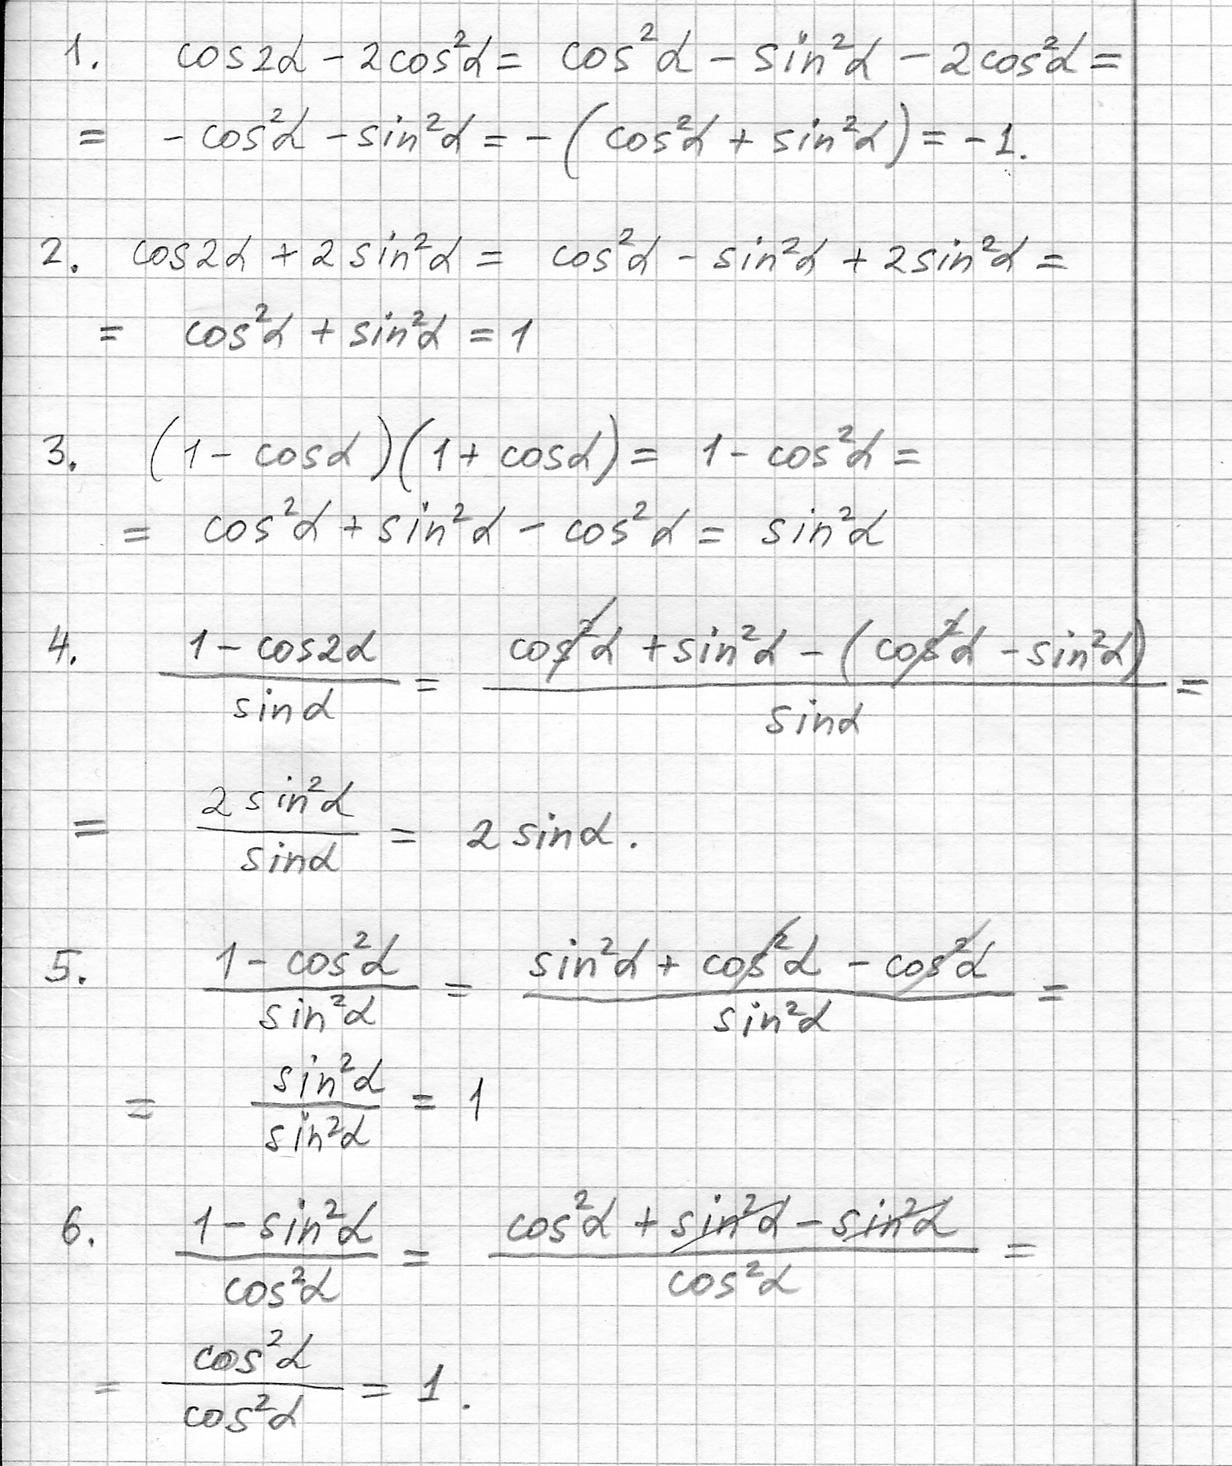 1. cos2α - 2cos²α = cos²α - sin²α - 2cos²α =
= -cos²α - sin²α = -(cos²α + sin²α) = -1.
2. cos2α + 2sin²α = cos²α - sin²α + 2sin²α =
= cos²α + sin²α = 1
3. (1 - cosα)(1 + cosα) = 1 - cos²α =
= cos²α + sin²α - cos²α = sin²α
4. (1 - cos2α)/(sinα) = (cos²α + sin²α - (cos²α - sin²α))/(sinα) =
= (2sin²α)/(sinα) = 2sinα.
5. (1 - cos²α)/(sin²α) = (sin²α + cos²α - cos²α)/(sin²α) =
= (sin²α)/(sin²α) = 1
6. (1 - sin²α)/(cos²α) = (cos²α + sin²α - sin²α)/(cos²α) =
= (cos²α)/(cos²α) = 1.